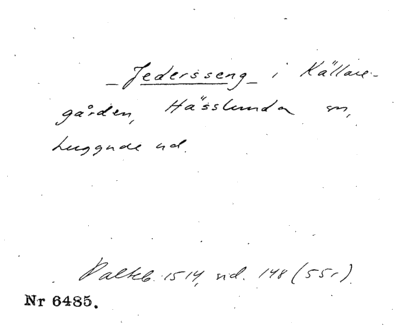 _ Jedersseng _ i Källare-
gården, Hässlunda sn,
Luggude hd.
Palteb. 1514, hd. 148 (55r).
Nr 6485.